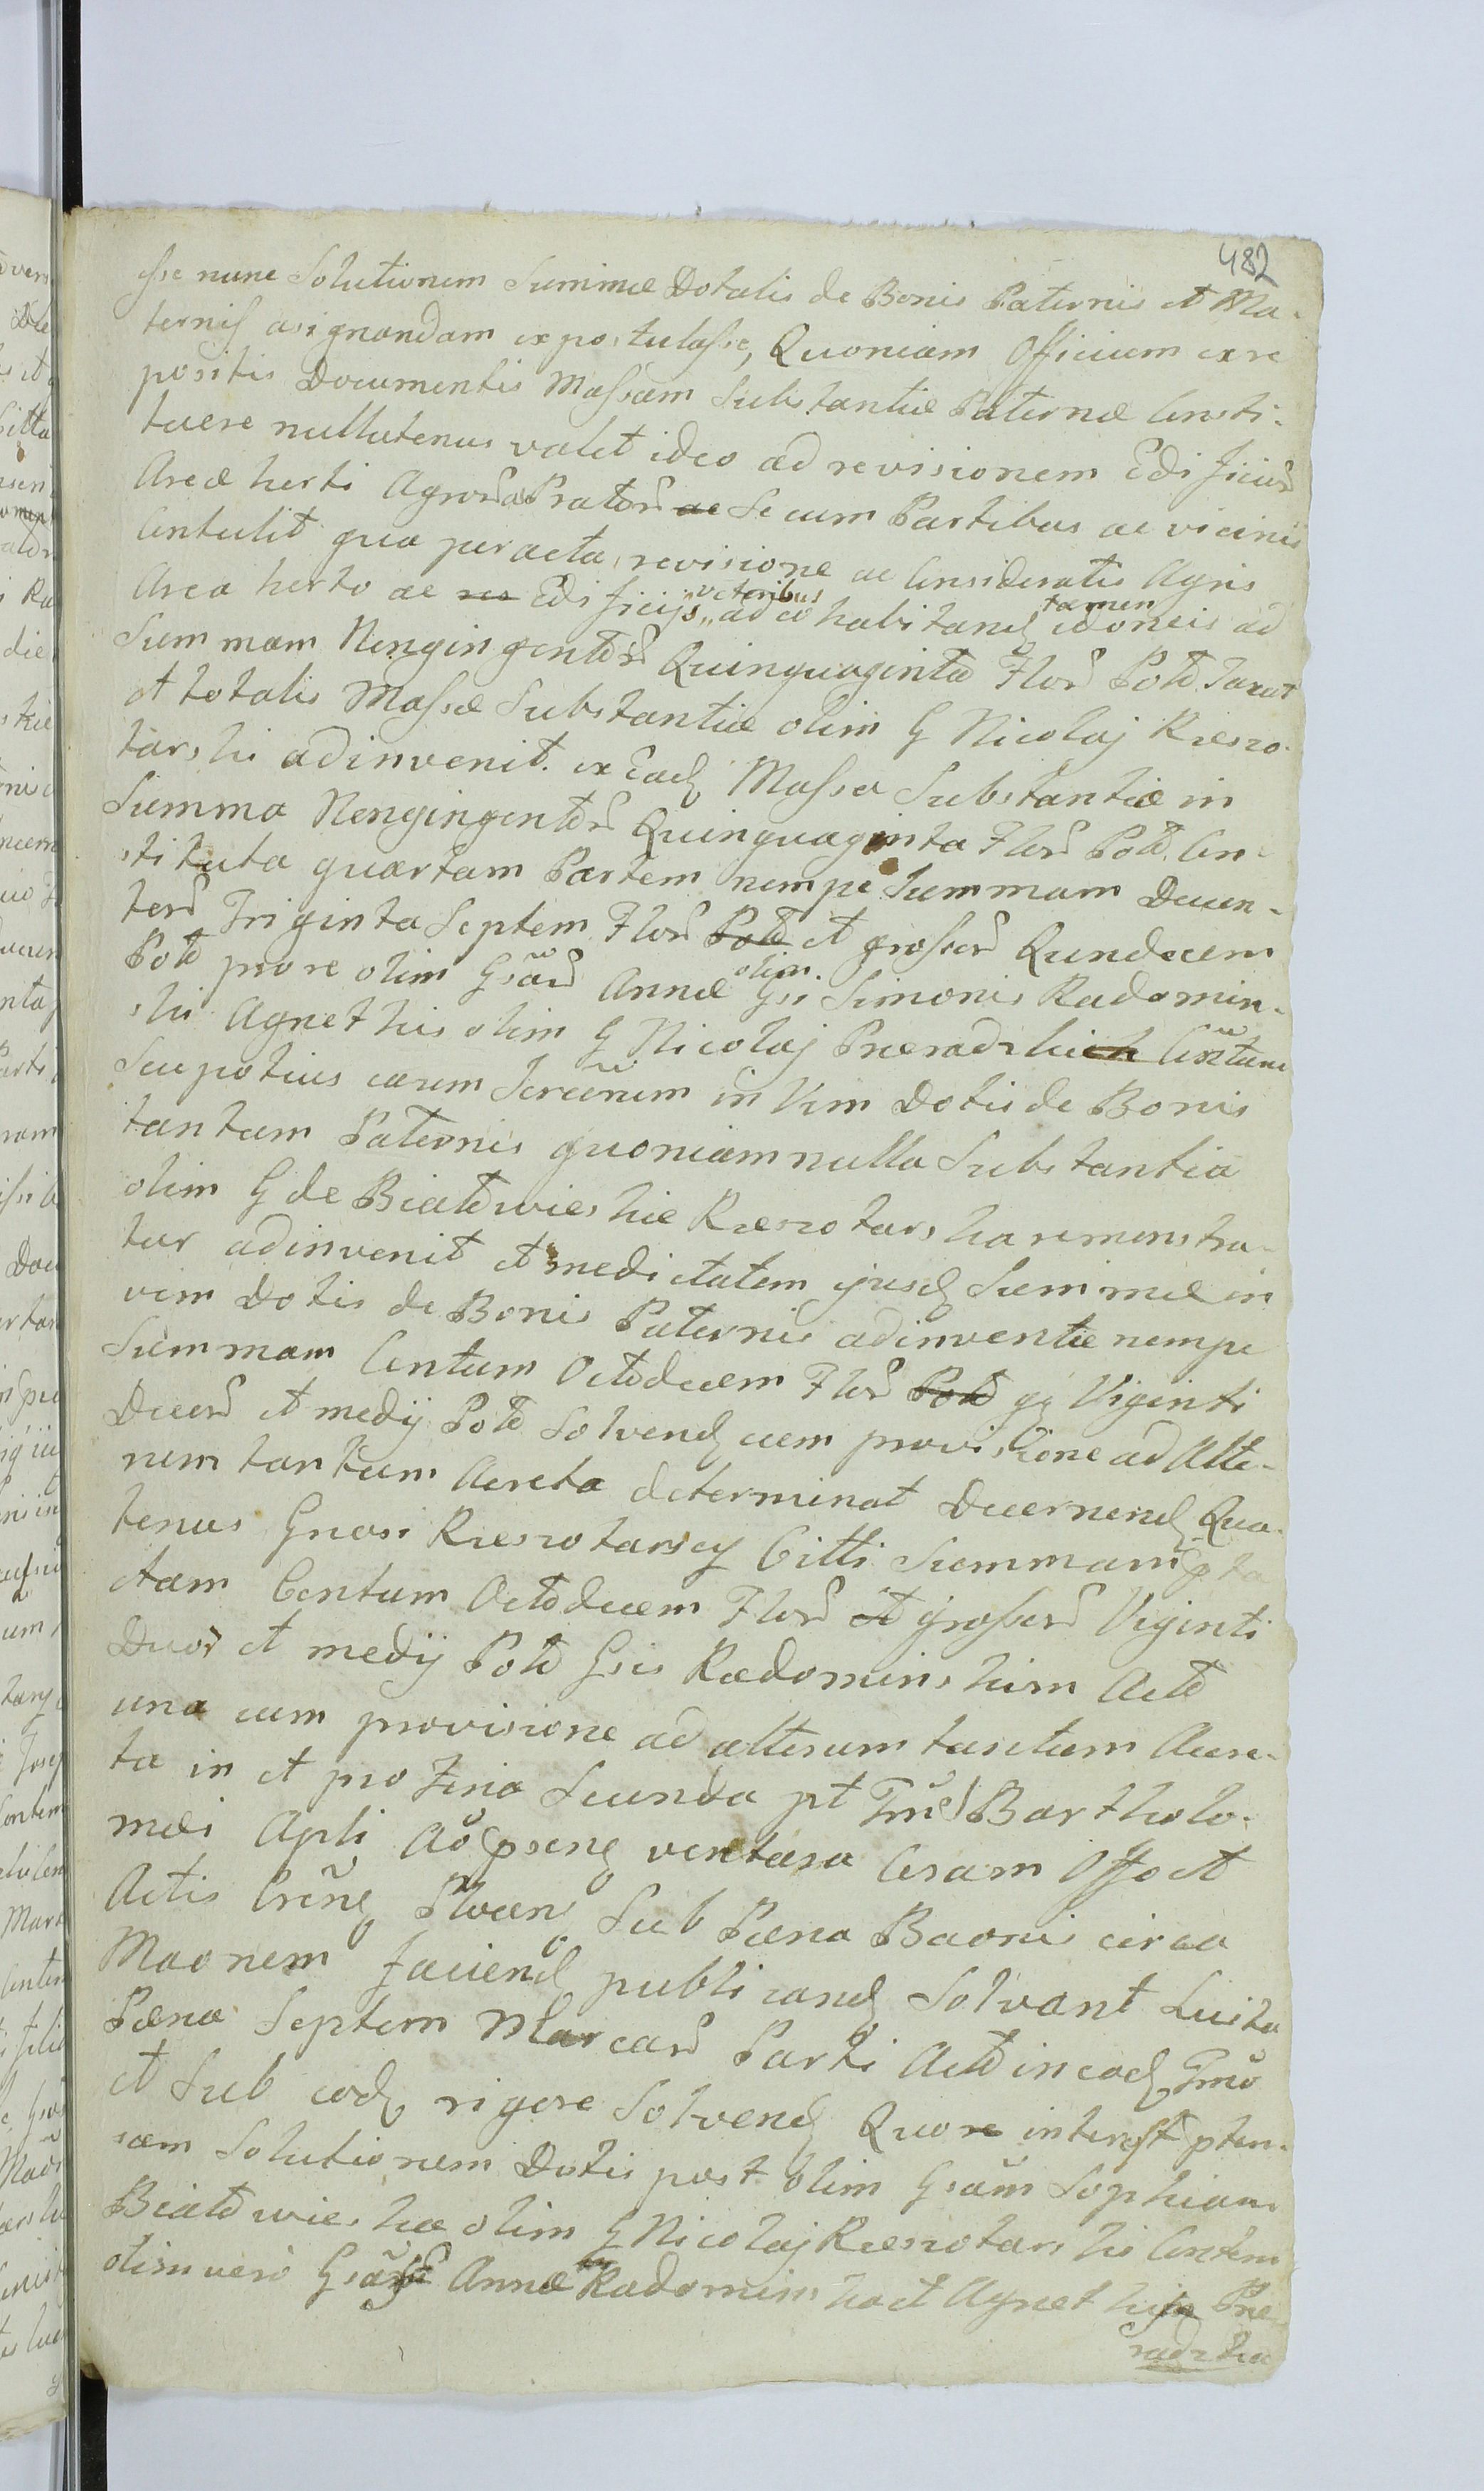 482
sse nunc Solutionem Summæ Dotalis de Bonis Paternis et Ma-
ternis asignandam expostulasse, Quoniam Officium ex re
positis Documentis Massam Substantiæ Paternæ Consti-
tuere nullatenus valet ideo ad revisionem Edificior
Areæ horti Agror Prator ac Se cum Partibus ac vicinis
Contulit qua peracta revisione ac Consideratis Agris
Area horto ac Edificijs veteribus ad co habitand tamen idoneis ad
Summam Nengingentor Quinquaginta Flor Pold Taxat
et totalis Massæ Substantiæ olim G Nicolaj Krzeszo-
tarski adinvenit. ex Ead Massa Substantiæ in
Summa Nengingentor Quinquaginta Flor Pold Con-
stituta quartam Partem nempe Summam Ducen-
tor Triginta Septem Flor Pold et grossor Quindecem
Pold pro re olim Gsar Annæ olim Gsi Simonis Radomin-
ski Agnethis olim G Nicolaj Pneradzki Conthm
Seu potius earum Sccernm in Vim Dotis de Bonis
tantum Paternis quoniam nulla Substantia
olim G de Białowieskie Krzeszotarska remonstra-
tur adinvenit et medietatem ejusd Summæ in
vim Dotis de Bonis Paternis adinventæ nempe
Summam Centum Octodecem Flor Pold gg Viginti
Duor et medij Pold Solvend cum provisione ad Alte-
rum tantum Acreta determinat Decernend Qua-
tenus Gnosi Krzeszotarscy Citti Summam
ctam Centum Octodecem Flor et grossor Viginti
Duor et medij Pold Gsis Radominskim Acto
una cum provisione ad alterum tantum Accre-
ta in et pro Feria Secunda pt Fm Bartholo-
mæi Apli Ao pseng ventura Coram Offo et
Actis Crēng Plocen Sub Pæna Baonis circa
Maonem faciend publicand Solvant Luita
Pæna Septem Marcar Parti Acto in eod Tmo
et Sub eod rigore Solvend Quo interest pten-
sam Solutionem Dotis post olim Gsam Sophiam
Białowieska olim G Nicolaj Krzeszotarskis Conthm
olim vero Gsar Annæ Radominska et Agnethis Pne
radzka